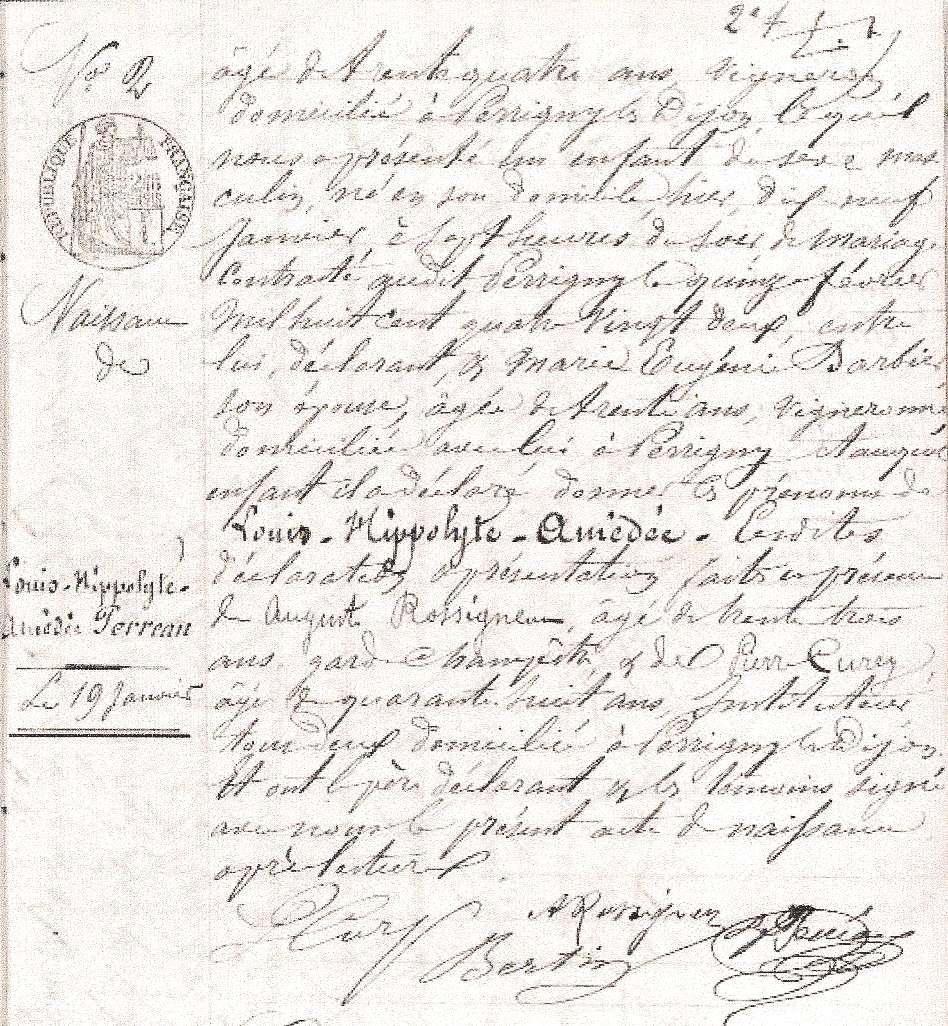 2e f
N° 2
RÉPUBLIQUE FRANÇAISE
Naissance
de
Louis-Hippolyte-
Amédée Perreau
Le 19 Janvier
âgé de trente quatre ans, vigneron
domicilié à Perrigny les Dijon, lequel
nous a présenté un enfant du sexe mas
culin, né en son domicile, hier, dix neuf
Janvier, à sept heures du soir, de mariage
contracté audit Perrigny le quinze février
Mil huit cent quatre vingt deux, entre
lui, déclarant, & Marie Eugénie Barbier,
son épouse, âgée de trente ans, vigneronne
domiciliée avec lui à Perrigny et auquel
enfant il a déclaré donner les prénoms de
Louis-Hippolyte-Amédée. Lesdites
déclaration & présentation faites en présence
de August Rossigneux, âgé de trente trois
ans, garde champêtre, & de Pierre Curey,
âgé de quarante huit ans, Instituteur
tous deux domicilié à Perrigny les Dijon
Et ont le père déclarant & les témoins signé
avec nous le présent acte de naissance
après lecture
A Rossigneux
Bertin